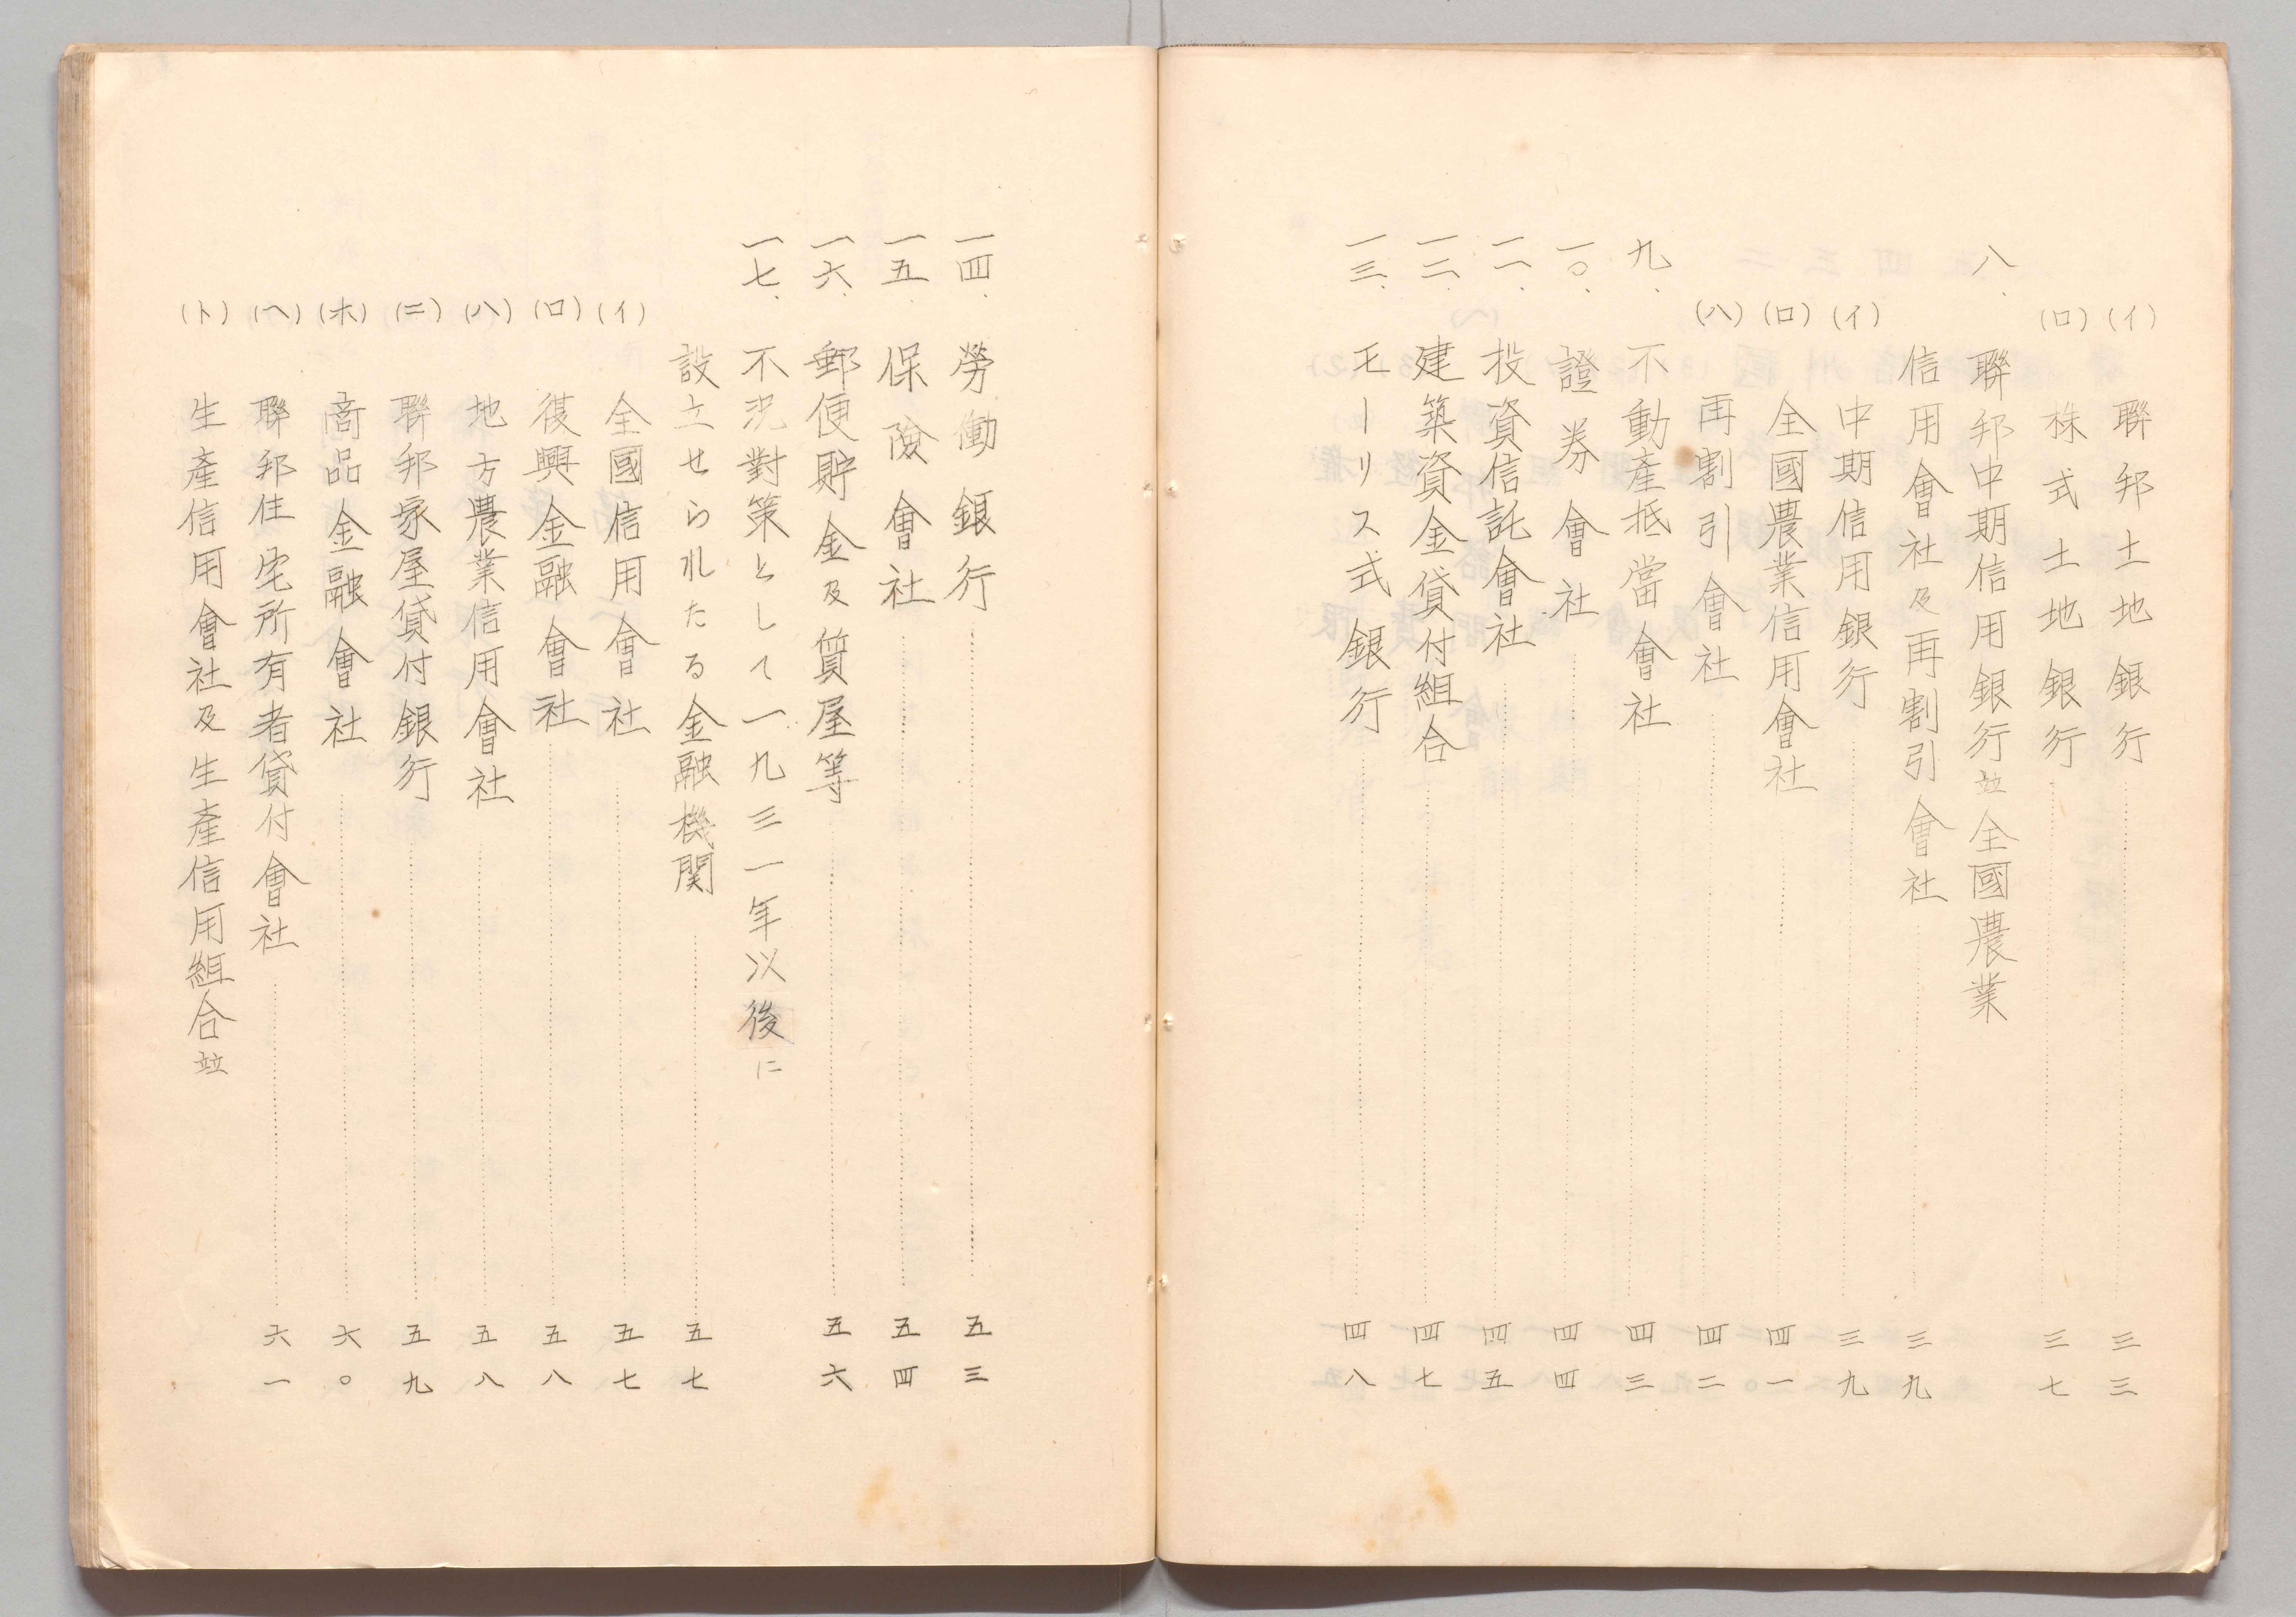 (イ) 聯邦土地銀行……三三
(ロ) 株式土地銀行……三七
八、聯邦中期信用銀行並全國農業
信用會社及再割引會社……三九
(イ) 中期信用銀行……三九
(ロ) 全國農業信用會社……四一
(ハ) 再割引會社……四二
九、不動産抵當會社……四三
一〇、證券會社……四四
一一、投資信託會社……四五
一二、建築資金貸付組合……四七
一三、モーリス式銀行……四八
一四、勞働銀行……五三
一五、保險會社……五四
一六、郵便貯金及質屋等……五六
一七、不況對策として一九三一年以後に
設立せられたる金融機関……五七
(イ) 全國信用會社……五七
(ロ) 復興金融會社……五八
(ハ) 地方農業信用會社……五八
(ニ) 聯邦家屋貸付銀行……五九
(ホ) 商品金融會社……六〇
(ヘ) 聯邦住宅所有者貸付會社……六一
(ト) 生産信用會社及生産信用組合並